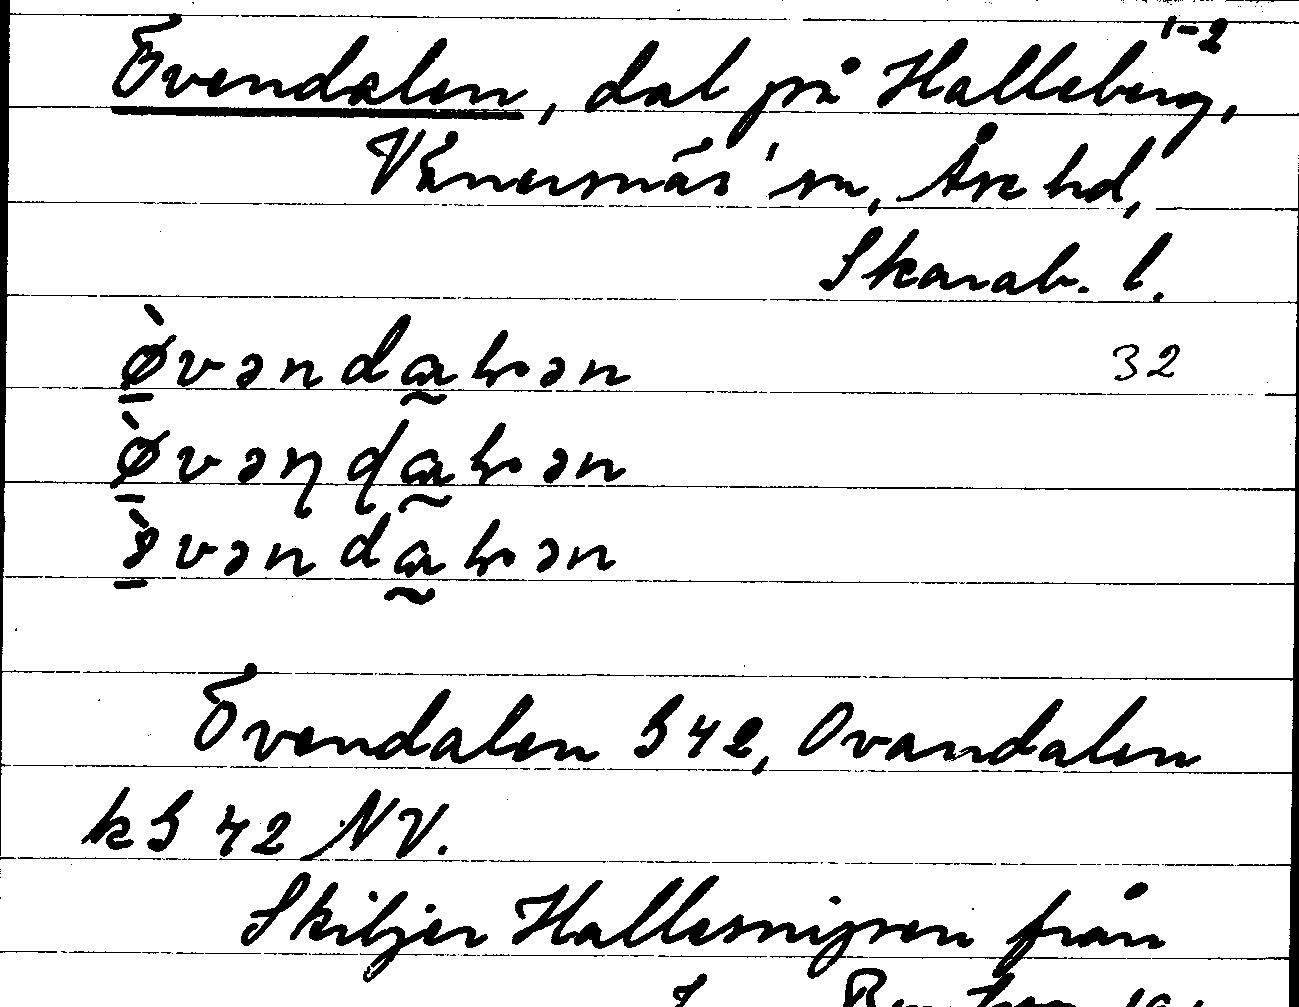 1-2
Övendalen, dal på Halleberg,
Vänersnäs' sn, Åse hd,
Skarab. l.
ø̀vəndaɫən 32
ø̀vəɳɖaɫən
vəndaɫən
Övendalen S42, Ovandalen
kS 42 NV.
Skiljer Hallesnipen från